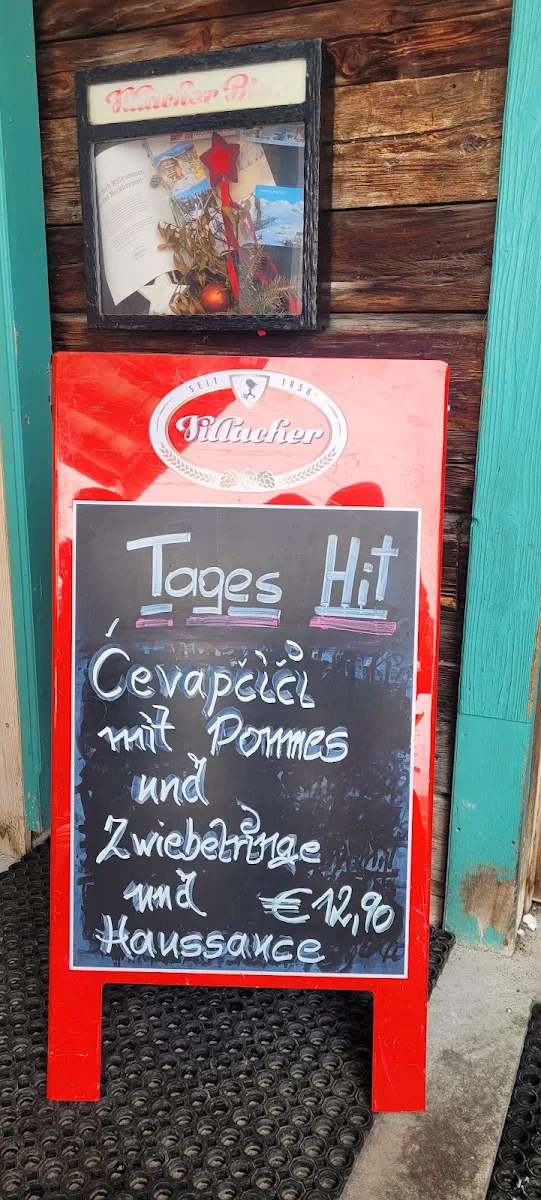 Villacher Bier
SEIT 1858
Villacher
Tages Hit
Ćevapčiči
mit Pommes
und
Zwiebelringe
und € 12,90
Haussauce